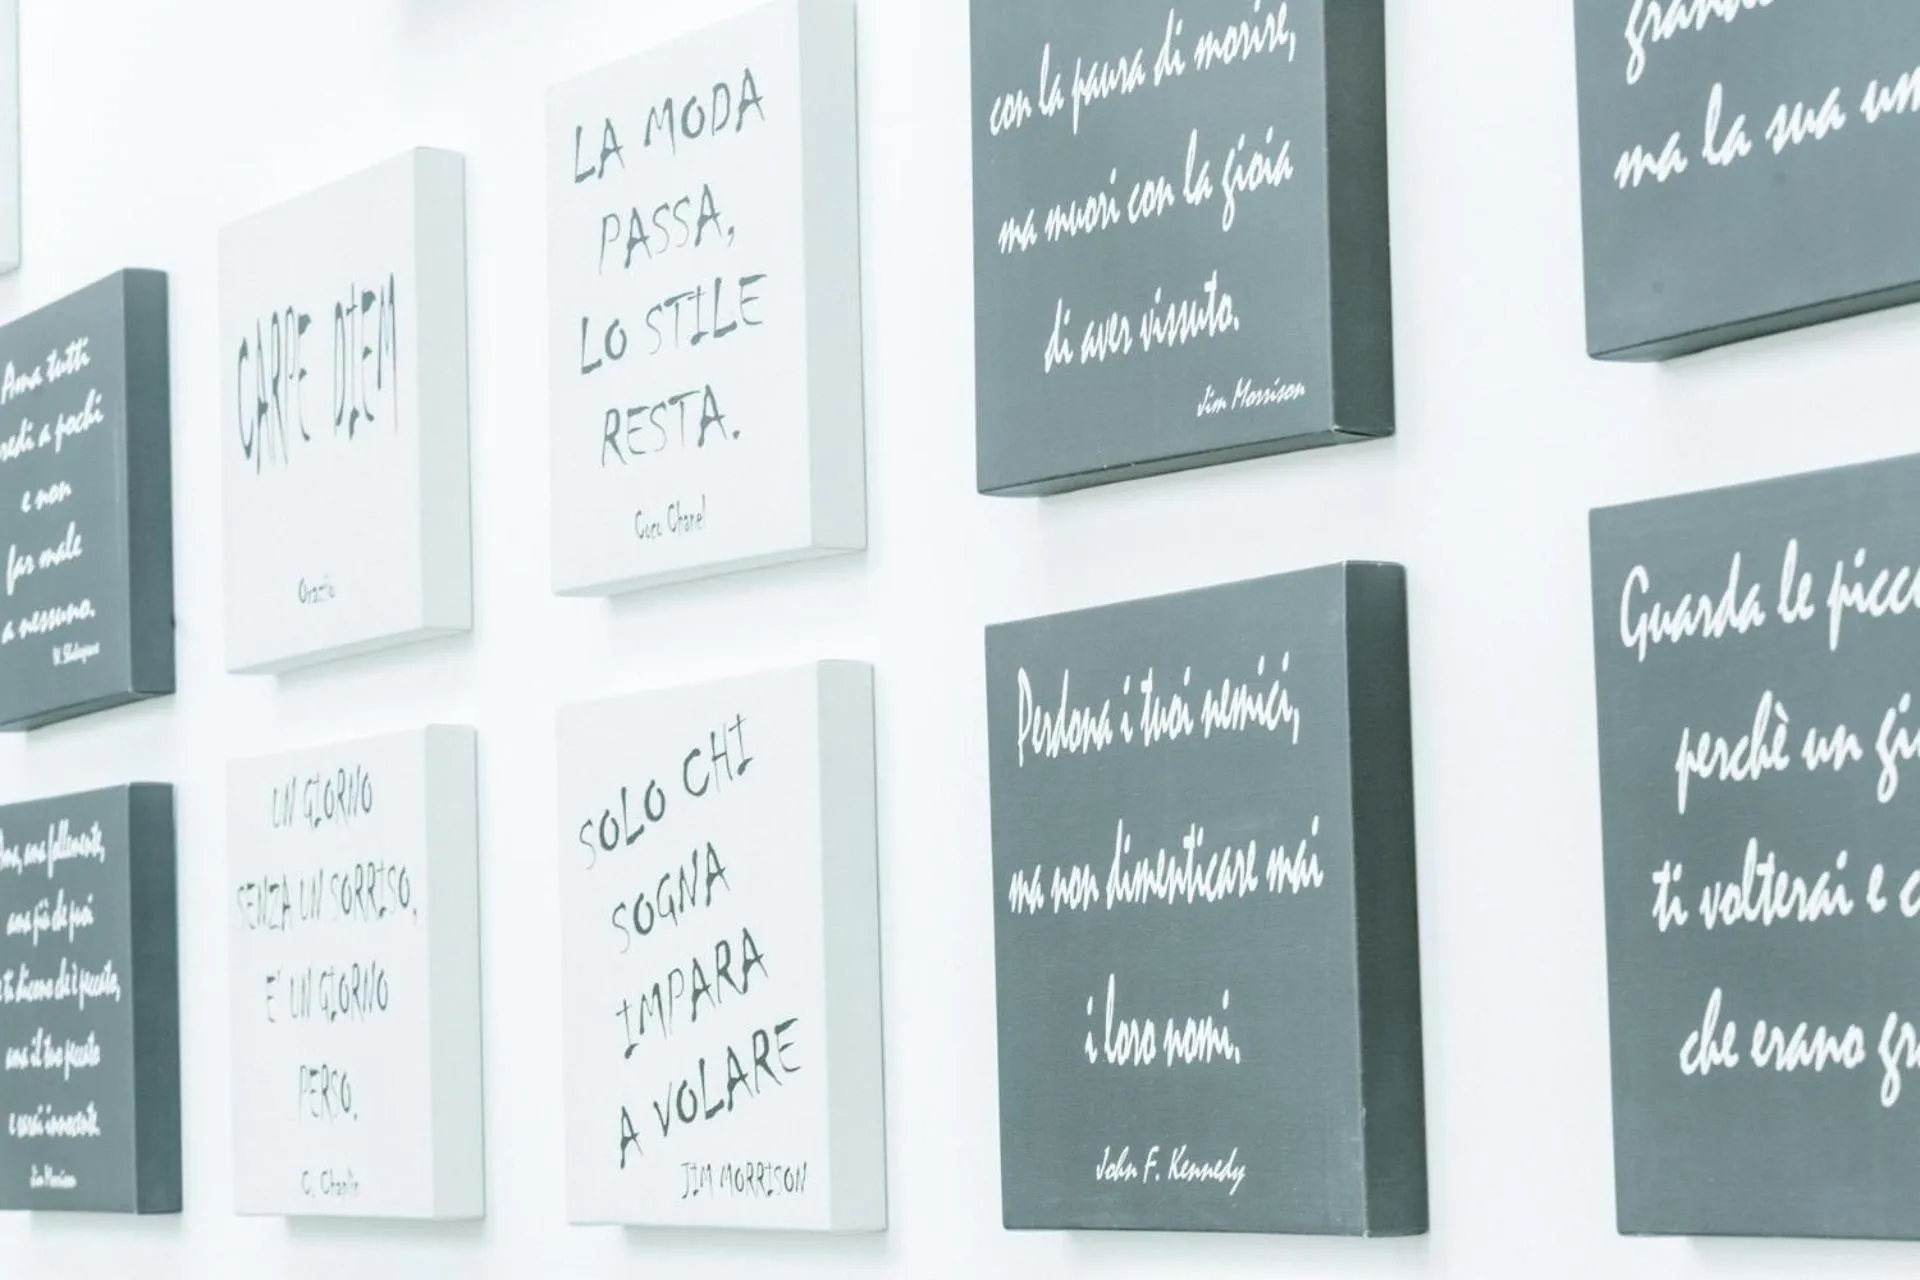 Ama tutti
a pochi
e non
far male
a nessuno.
CARPE DIEM
Orazio
LA MODA
PASSA,
LO STILE
RESTA.
Coco Chanel
con la paura di morire,
ma muori con la gioia
di aver vissuto.
Jim Morrison
ma la sua
ama più che puoi
ti dicono che è peccato,
ama il tuo peccato
e sarai innocente.
Jim Morrison
UN GIORNO
SENZA UN SORRISO,
E' UN GIORNO
PERSO.
C. Chaplin
SOLO CHI
SOGNA
IMPARA
A VOLARE
JIM MORRISON
Perdona i tuoi nemici,
ma non dimenticare mai
i loro nomi.
John F. Kennedy
Guarda le
perchè un
ti volterai e
che erano